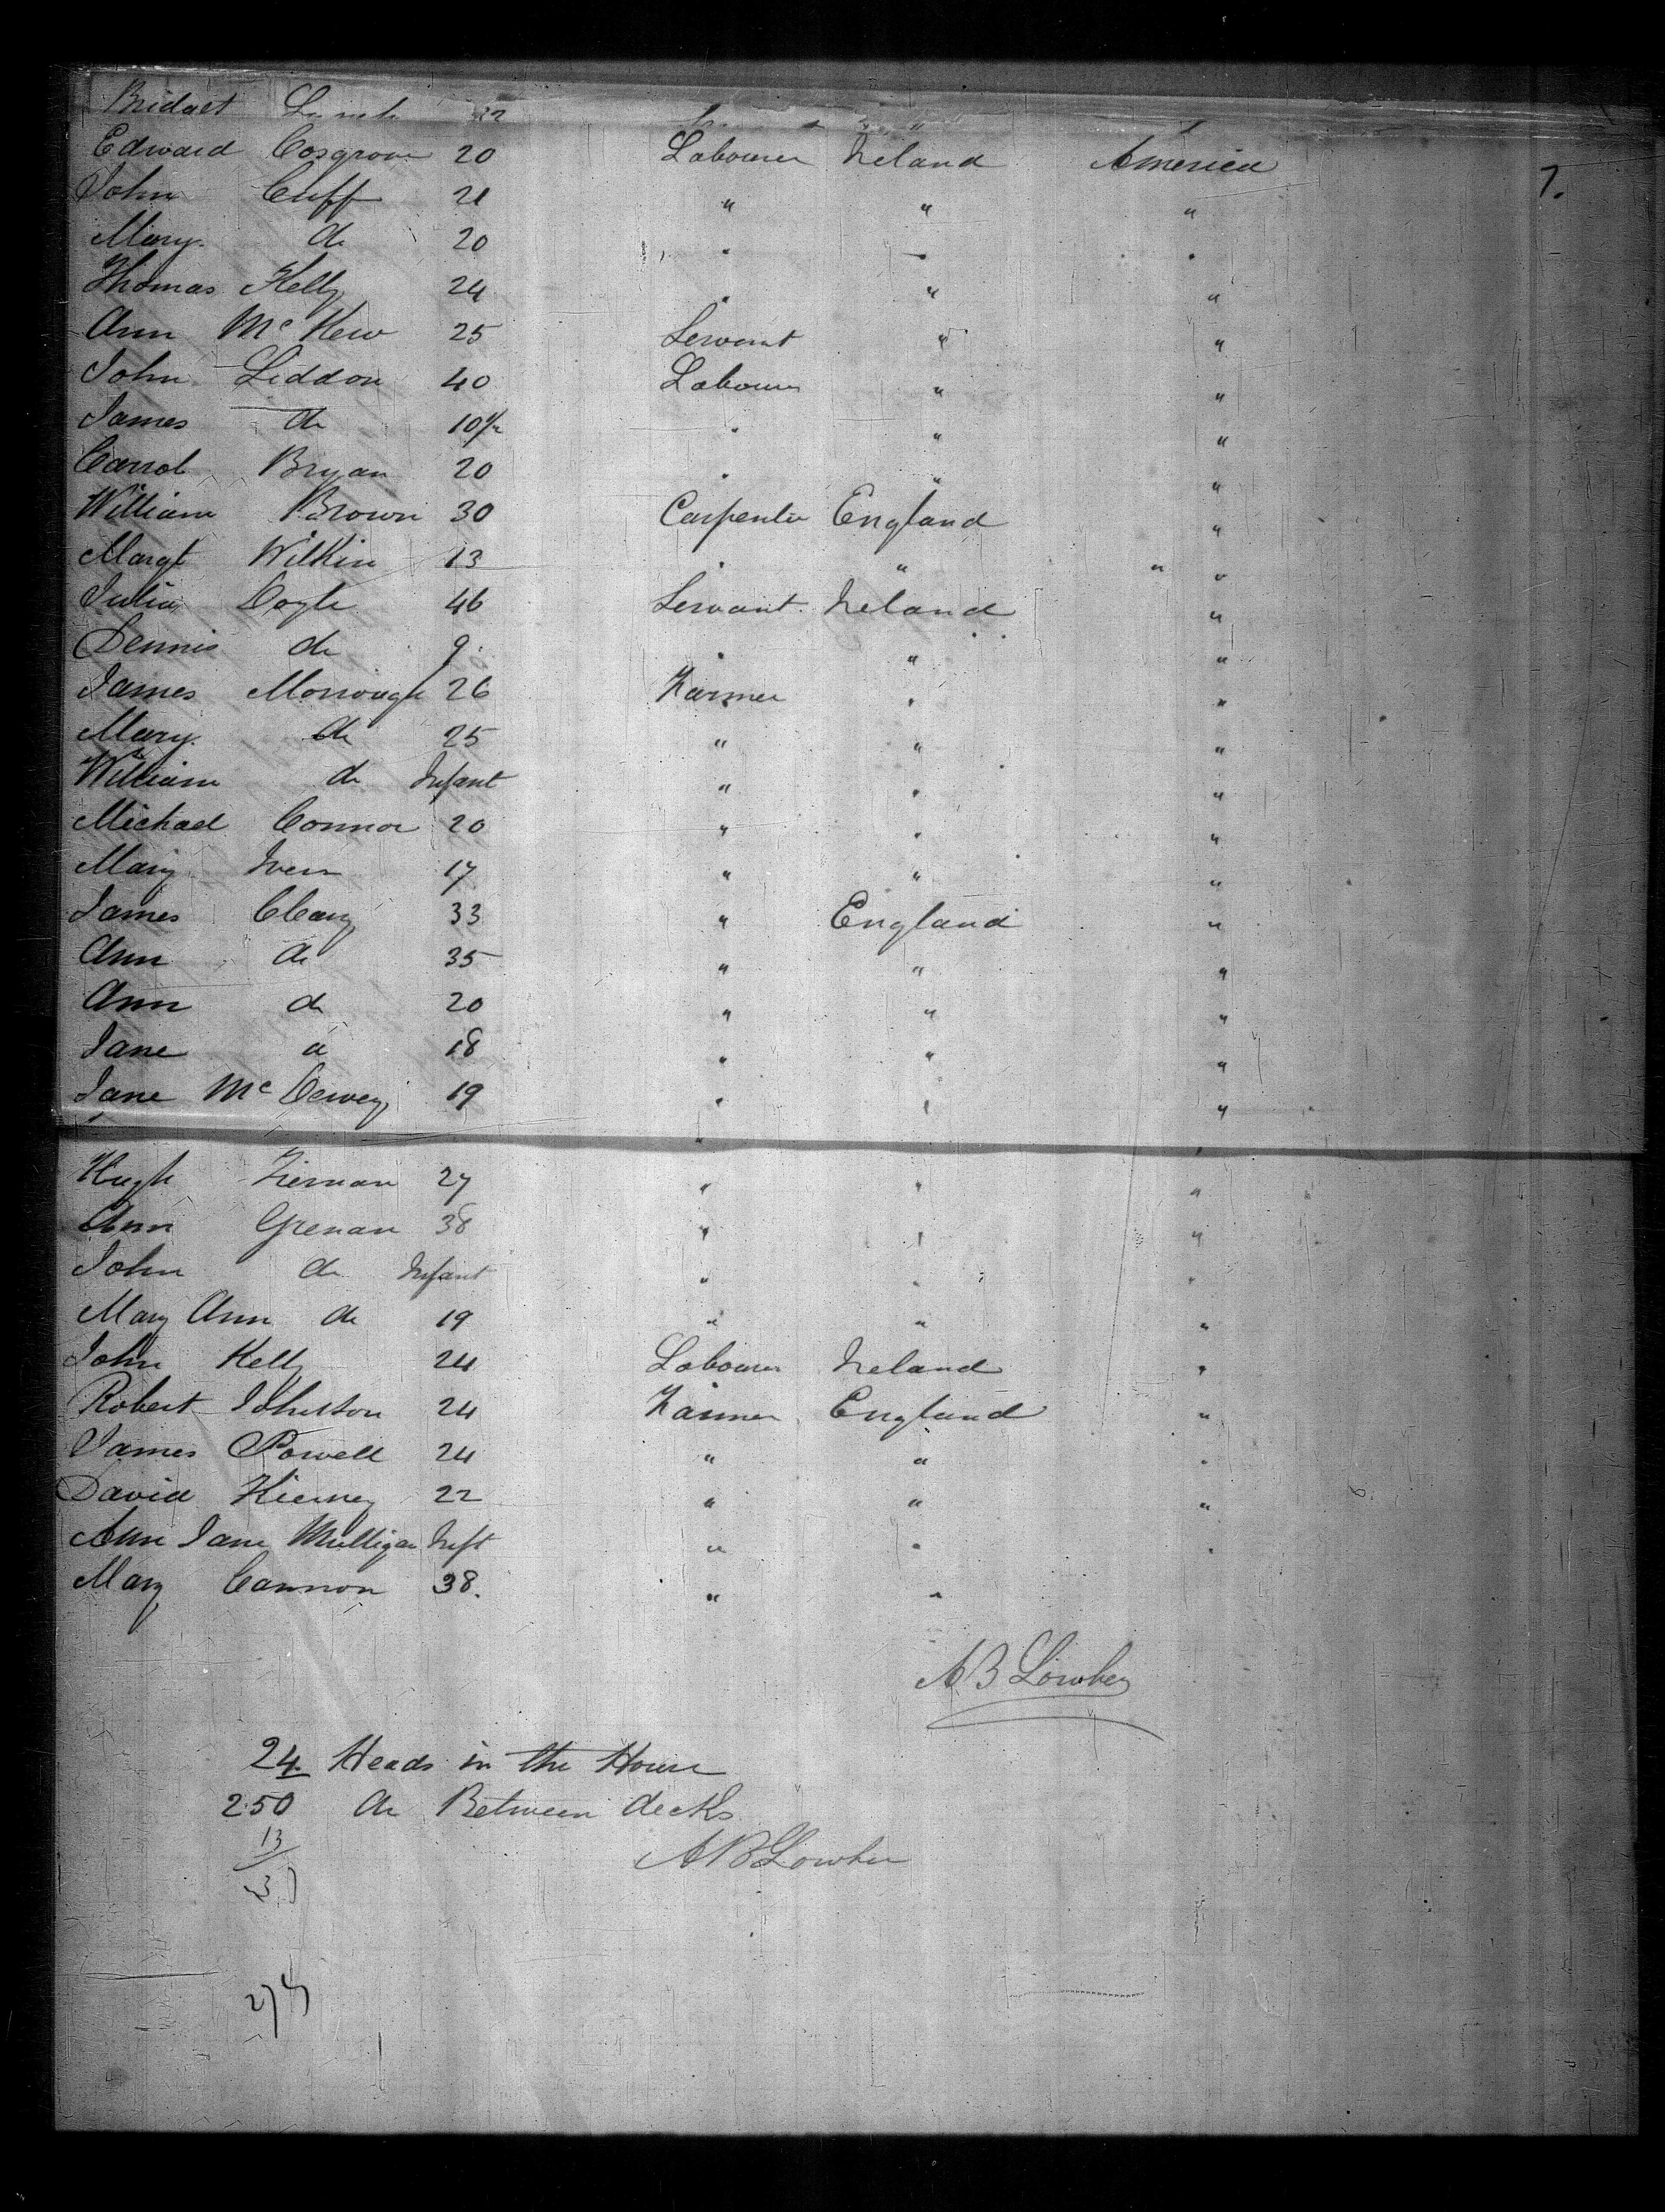 Bridget Lynch 22 "
Edward Cosgrove 20 Labourer Ireland America
7.
John Cuff 21 " " "
Mary do 20 " " "
Thomas Kelly 24 " " "
Ann McKew 25 Servant " "
John Liddon 40 Labourer " "
James do 10½ " " "
Carrol Bryan 20 " " "
William Brown 30 Carpenter England "
Margt Wilkin 13 " " " "
Julia Doyle 46 Servant Ireland "
Dennis do 9 " " "
James Morrough 26 Farmer " "
Mary do 25 " " "
William do Infant " " "
Michael Connor 20 " " "
Mary Ivers 17 " " "
James Cleary 33 " England "
Ann do 35 " " "
Ann do 20 " " "
Jane do 18 " " "
Jane Mc 19 " " "
Hugh 27 " " "
Ann Grenan 38 " " "
John do Infant " " "
Mary Ann do 19 " " "
John Kelly 24 Labourer Ireland "
Robert Johnston 24 Farmer England "
James Powell 24 " " "
David Kierney 22 " " "
Ann Jane Mulligan Inft " " "
Mary Cannon 38. " "
A B Lowber
24 Heads in the House
250 do Between decks
13
A B Lowber